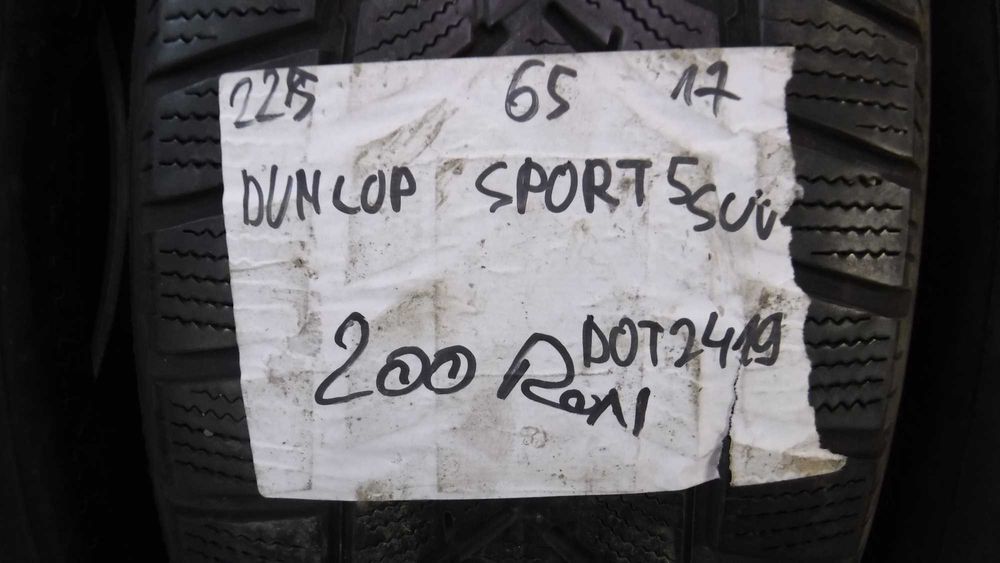 225 65 17
DUNLOP SPORT 5 SUV
DOT2419
200